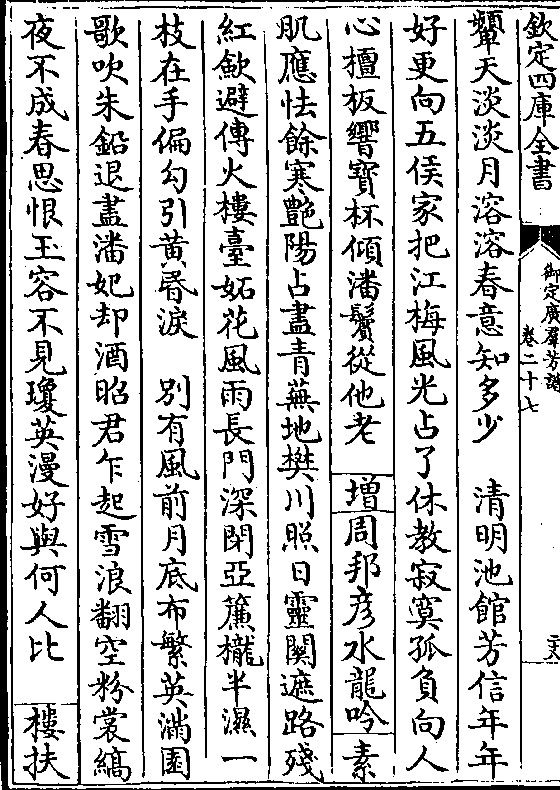 欽定四庫全書
御定廣羣芳譜
卷二十七
顰天淡淡月溶溶春意知多少　清明池館芳信年年
好更向五侯家把江梅風光占了休教寂寞孤負向人
心檀板響寶杯傾潘鬢從他老　增周邦彦水龍吟素
肌應怯餘寒艷陽占盡青蕪地樊川照日靈關遮路殘
紅歛避傳火樓臺妬花風雨長門深閉亞簾櫳半濕一
枝在手偏勾引黄昏淚　别有風前月底布繁英滿園
歌吹朱鉛退盡潘妃却酒昭君乍起雪浪翻空粉裳縞
夜不成春思恨玉容不見瓊英漫好與何人比　樓扶